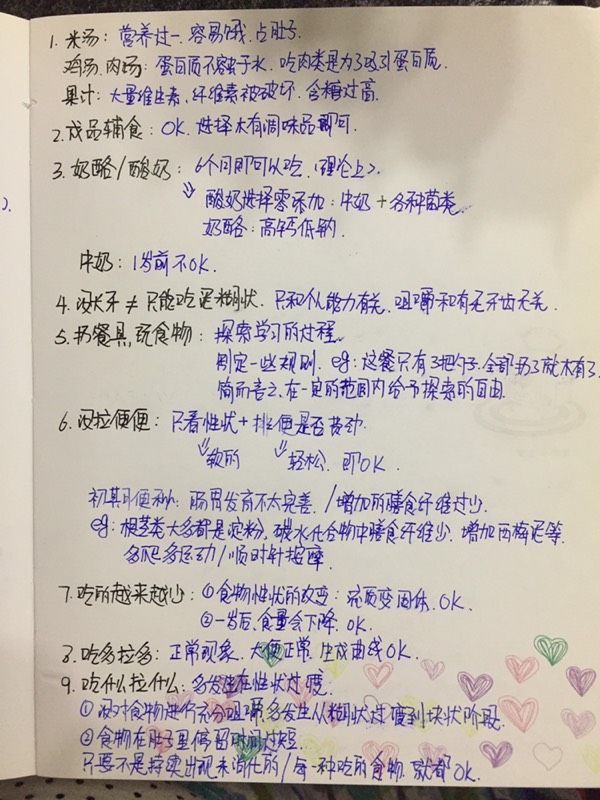 1. 米汤: 营养过一. 容易饿. 占肚子
鸡汤. 肉汤: 蛋白质不容于水. 吃肉类是为了吸引蛋白质.
果汁: 大量维生素. 纤维素被破坏. 含糖过高.
2. 成品辅食: OK. 选择木有调味品即可.
3. 奶酪/酸奶: 6个月即可以吃. (理论上).
酸奶选择零添加: 牛奶 + 各种菌类.
奶酪: 高钙低钠.
牛奶: 1岁前不OK.
4. 没长牙 ≠ 只能吃泥糊状. 只和个人能力有关. 咀嚼和有无牙齿无关.
5. 扔餐具, 玩食物: 探索学习的过程.
制定一些规则. eg: 这餐只有3把勺子. 全部扔了就木有了.
简而言之. 在一定的范围内给予探索的自由.
6. 没拉便便: 只看性状 + 排便是否费劲.
软的 轻松. 即OK.
初期便秘: 肠胃发育不太完善. / 增加的膳食纤维过少.
eg: 根茎类大多都是淀粉. 碳水化合物中膳食纤维少. 增加西梅泥等.
多爬多运动 / 顺时针按摩.
7. 吃的越来越少: ①食物性状的改变: 液质变固体. OK.
②一岁后. 食量会下降. OK.
8. 吃多拉多: 正常现象. 大便正常. 生成曲线OK.
9. 吃什么拉什么: 多发生在性状过渡.
①没对食物进行充分咀嚼. 多发生从糊状过渡到块状阶段.
②食物在肚子里停留时间过短.
只要不是持续出现未消化的 / 每一种吃的食物. 就都OK.